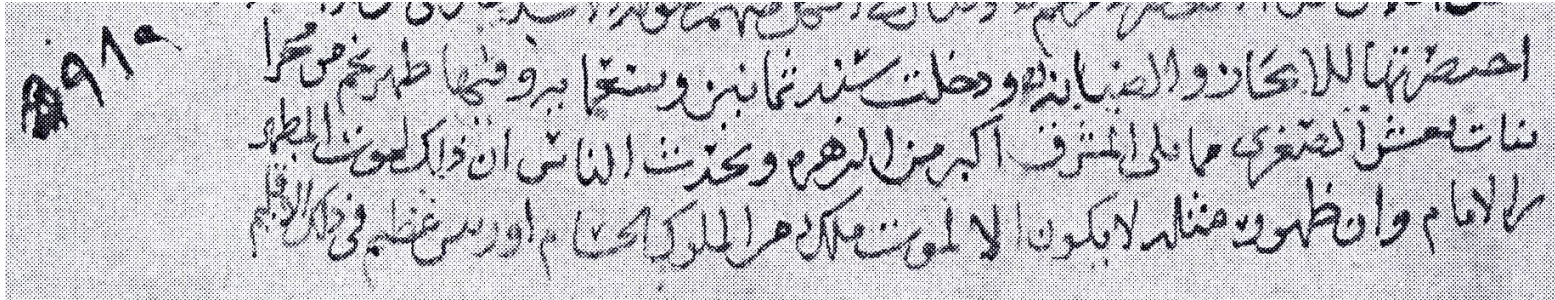 ٩٨٠
اختصرتها للايجاز والصيانه ودخلت سنة ثمانين وتسعمايه وفيها ظهر نجم من مجرا
بنات نعش الصغرى مما يلي المشرق اكبر من الزهره وتحدث الناس ان ذلك لموت المطهر
بن الامام وان ظهور مثله لا يكون الا لموت ملك من الملوك الجسام او رييس عظيم في ذلك الاقليم